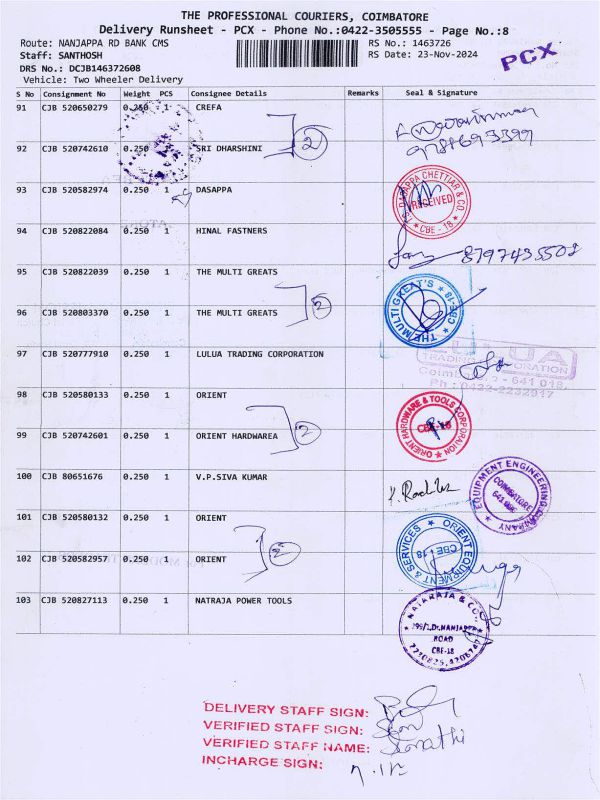 THE PROFESSIONAL COURIERS, COIMBATORE
Delivery Runsheet - PCX - Phone No.:0422-3505555 - Page No.:8
Route: NANJAPPA RD BANK CMS
RS No.: 1463726
Staff: SANTHOSH
RS Date: 23-Nov-2024
DRS No.: DCJB146372608
Vehicle: Two Wheeler Delivery
PCX
S No Consignment No Weight PCS Consignee Details Remarks Seal & Signature
91 CJB 520650279 0.250 1 CREFA
92 CJB 520742610 0.250 SRI DHARSHINI 2
9786693399
93 CJB 520582974 0.250 1 DASAPPA
DASAPPA CHETTIAR & CO.
RECEIVED
CBE - 18
94 CJB 520822084 0.250 1 HINAL FASTNERS
8797435502
95 CJB 520822039 0.250 1 THE MULTI GREATS
96 CJB 520803370 0.250 1 THE MULTI GREATS 2
THE MULTI GREAT'S
97 CJB 520777910 0.250 1 LULUA TRADING CORPORATION
LULUA
TRADING CORPORATION
Coimbatore - 641 018.
Ph : 0422-2232917
98 CJB 520580133 0.250 1 ORIENT
99 CJB 520742601 0.250 1 ORIENT HARDWAREA 2
ORIENT HARDWARE & TOOLS CORPORATION
CBE-18
100 CJB 80651676 0.250 1 V.P.SIVA KUMAR
EQUIPMENT ENGINEERING COMPANY
COIMBATORE
101 CJB 520580132 0.250 1 ORIENT
102 CJB 520582957 0.250 1 ORIENT 2
ORIENT EQUIPMENT & SERVICES
CBE - 18
103 CJB 520827113 0.250 1 NATRAJA POWER TOOLS
NATARAJA & CO
ROAD
CBE-18
DELIVERY STAFF SIGN:
VERIFIED STAFF SIGN:
VERIFIED STAFF NAME:
INCHARGE SIGN: